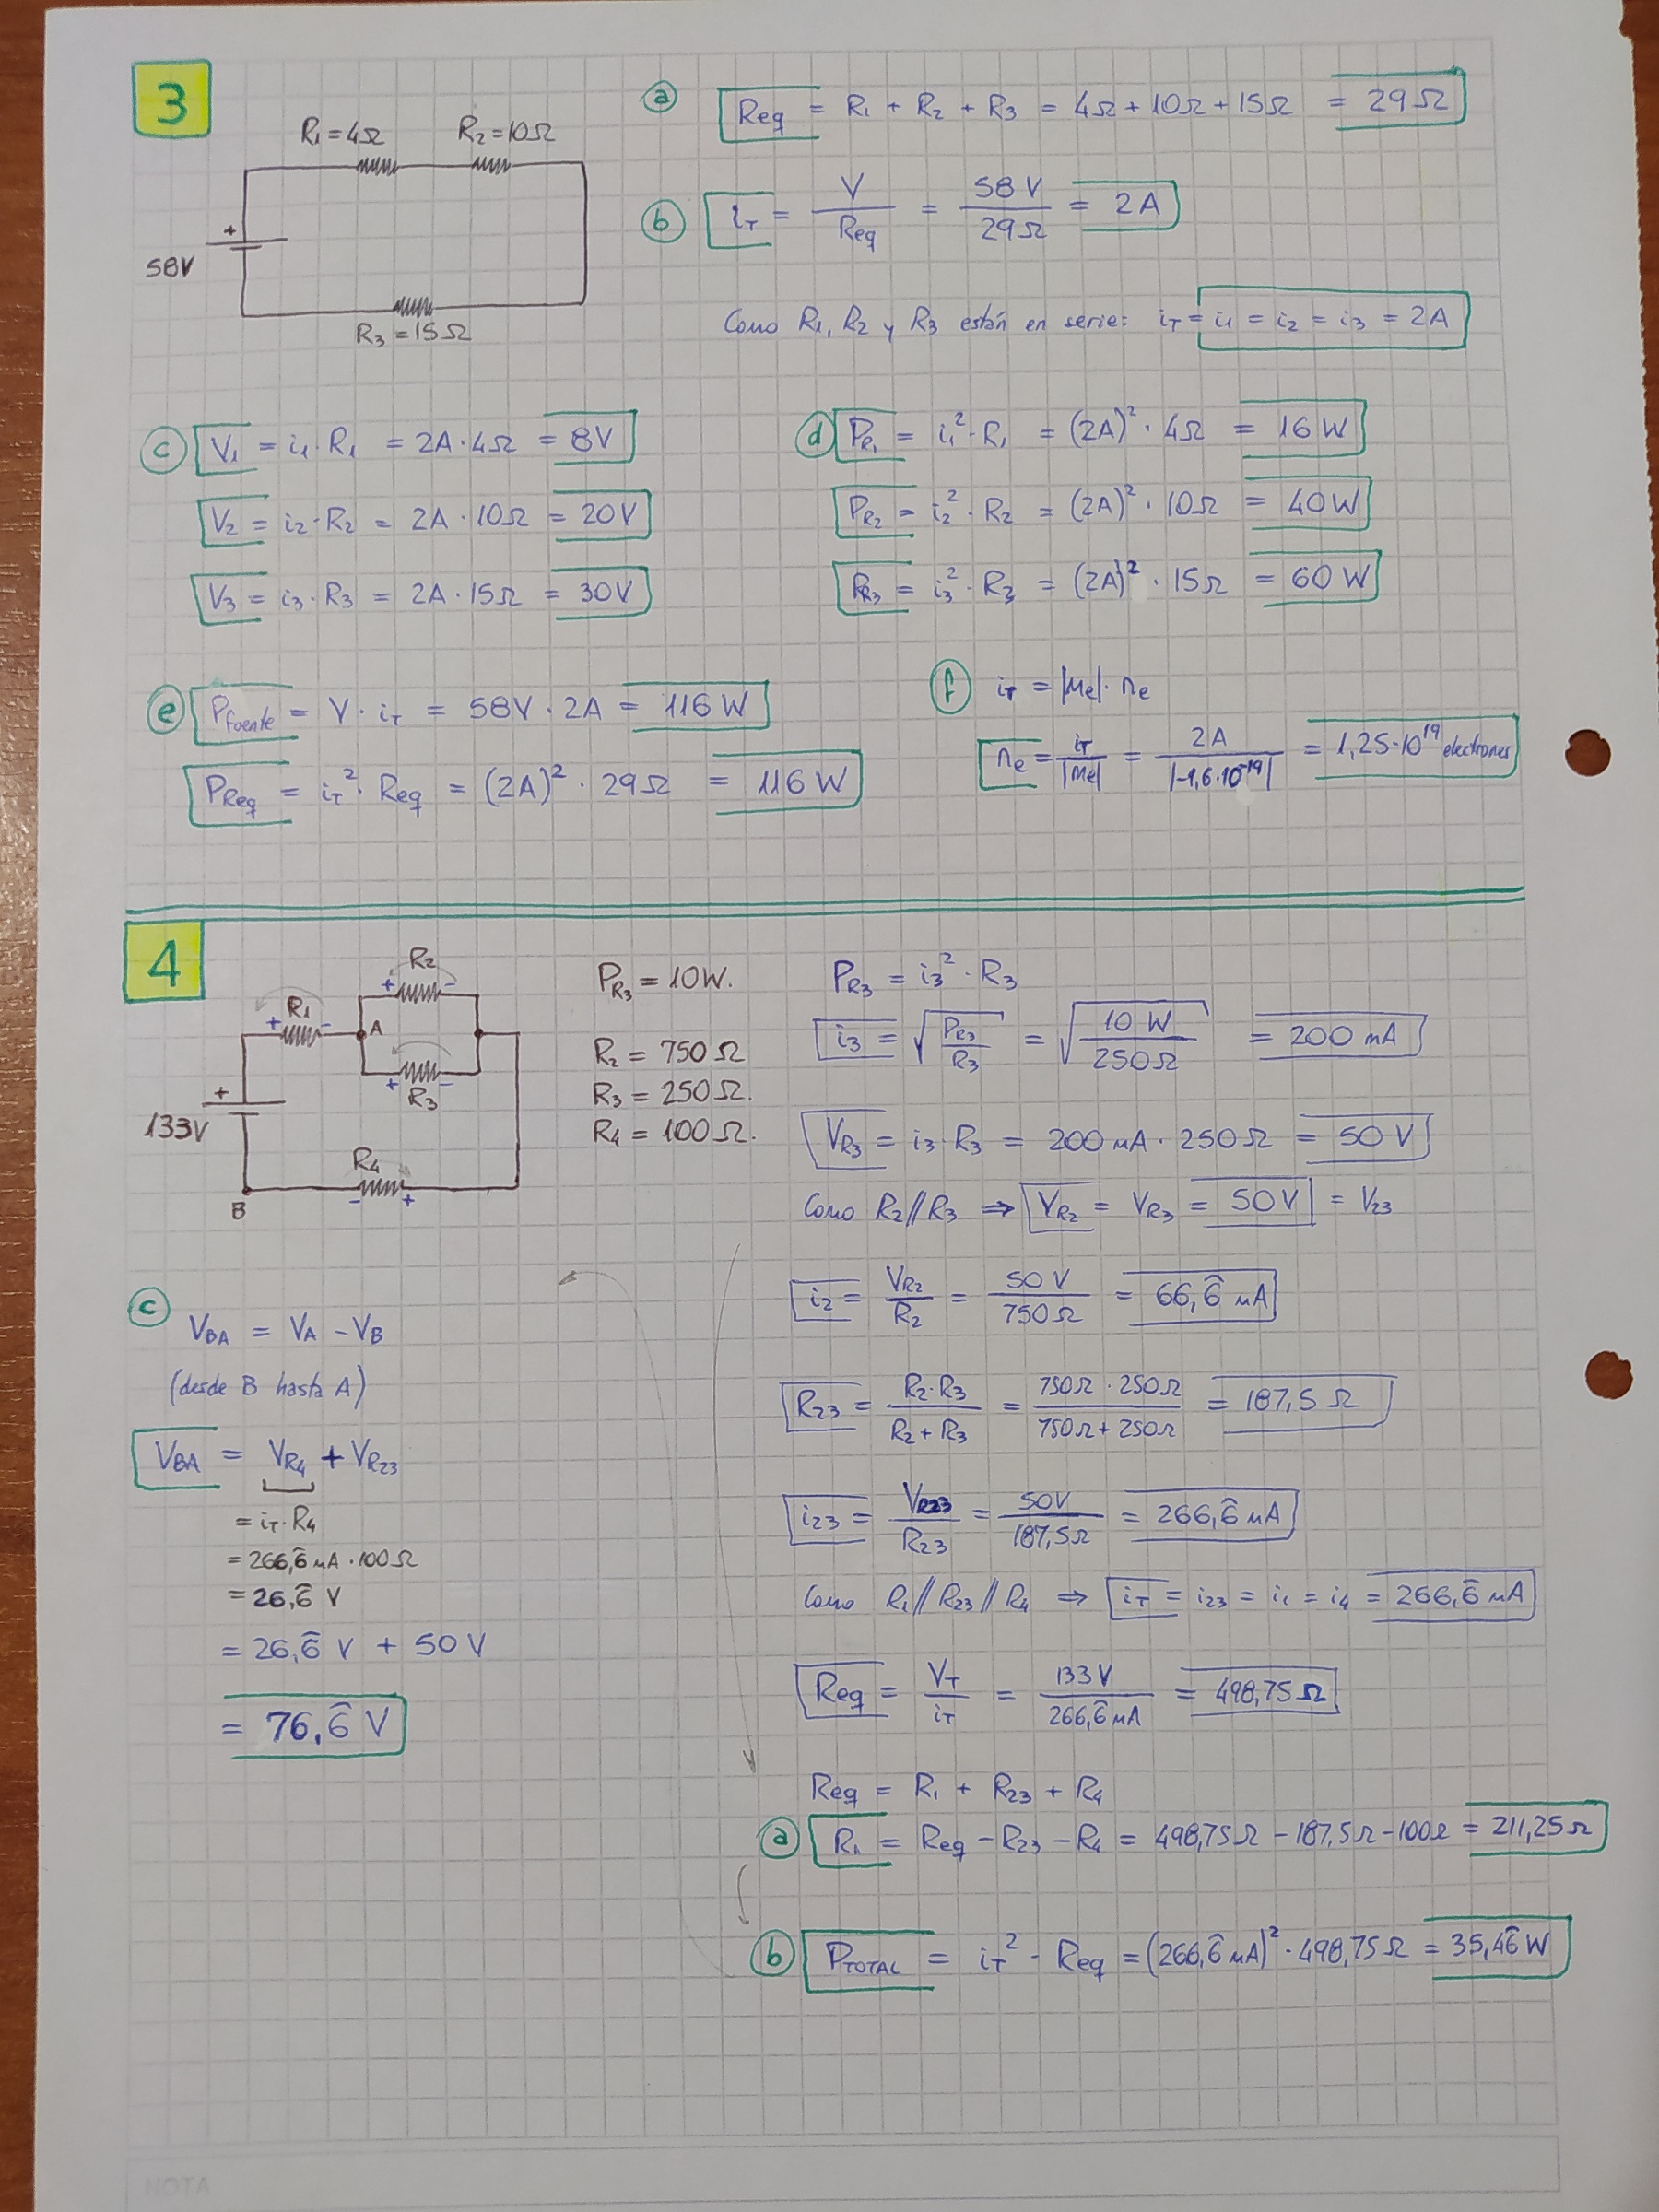 3
R₁=4Ω
R₂=10Ω
+
58V
R₃=15Ω
a Req = R₁ + R₂ + R₃ = 4Ω + 10Ω + 15Ω = 29Ω
b i_T = V / Req = 58 V / 29Ω = 2A
Como R₁, R₂ y R₃ están en serie: i_T = i₁ = i₂ = i₃ = 2A
c V₁ = i₁·R₁ = 2A·4Ω = 8V
V₂ = i₂·R₂ = 2A·10Ω = 20V
V₃ = i₃·R₃ = 2A·15Ω = 30V
d P_R₁ = i₁²·R₁ = (2A)²·4Ω = 16 W
P_R₂ = i₂²·R₂ = (2A)²·10Ω = 40W
P_R₃ = i₃²·R₃ = (2A)²·15Ω = 60 W
e P_fuente = V·i_T = 58V·2A = 116 W
P_Req = i_T²·Req = (2A)²·29Ω = 116 W
f i_T = |μe|·ne
ne = i_T / |μe| = 2A / |-1,6·10⁻¹⁹| = 1,25·10¹⁹ electrones
4
R₂
+ -
R₁
+ -
A
+ -
R₃
+
133V
R₄
- +
B
P_R₃ = 10W.
R₂ = 750Ω
R₃ = 250Ω.
R₄ = 100Ω.
P_R₃ = i₃²·R₃
i₃ = √(P_R₃ / R₃) = √(10 W / 250Ω) = 200 mA
V_R₃ = i₃·R₃ = 200 mA·250Ω = 50 V
Como R₂//R₃ ⇒ V_R₂ = V_R₃ = 50V = V₂₃
i₂ = V_R₂ / R₂ = 50 V / 750Ω = 66,6̂ mA
R₂₃ = R₂·R₃ / R₂ + R₃ = 750Ω·250Ω / 750Ω + 250Ω = 187,5Ω
i₂₃ = V_R₂₃ / R₂₃ = 50V / 187,5Ω = 266,6̂ mA
Como R₁//R₂₃//R₄ ⇒ i_T = i₂₃ = i₁ = i₄ = 266,6̂ mA
Req = V_T / i_T = 133V / 266,6̂ mA = 498,75Ω
Req = R₁ + R₂₃ + R₄
a R₁ = Req - R₂₃ - R₄ = 498,75Ω - 187,5Ω - 100Ω = 211,25Ω
b P_TOTAL = i_T² · Req = (266,6̂ mA)²·498,75Ω = 35,46̂ W
c
V_BA = V_A - V_B
(desde B hasta A)
V_BA = V_R₄ + V_R₂₃
= i_T·R₄
= 266,6̂ mA·100Ω
= 26,6̂ V
= 26,6̂ V + 50 V
= 76,6̂ V